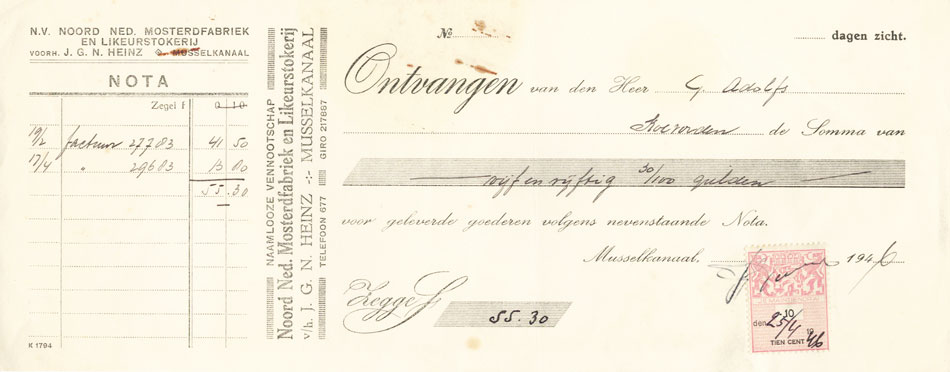 N.V. NOORD NED. MOSTERDFABRIEK
EN LIKEURSTOKERIJ
VOORH. J. G. N. HEINZ MUSSELKANAAL
NOTA
Zegel f 0 10
19/2 factuur 27783 41 50
17/4 " 29683 13 80
55.30
K 1794
NAAMLOOZE VENNOOTSCHAP
Noord Ned. Mosterdfabriek en Likeurstokerij
v/h. J. G. N. HEINZ -:- MUSSELKANAAL
TELEFOON 677 GIRO 217887
№ dagen zicht.
Ontvangen van den Heer G. Adolfs
Koevorden de Somma van
vijf en vijftig 30/100 gulden
voor geleverde goederen volgens nevenstaande Nota.
Musselkanaal, 1946
Zegge f 55.30
10
den 25/4 1946
TIEN CENT